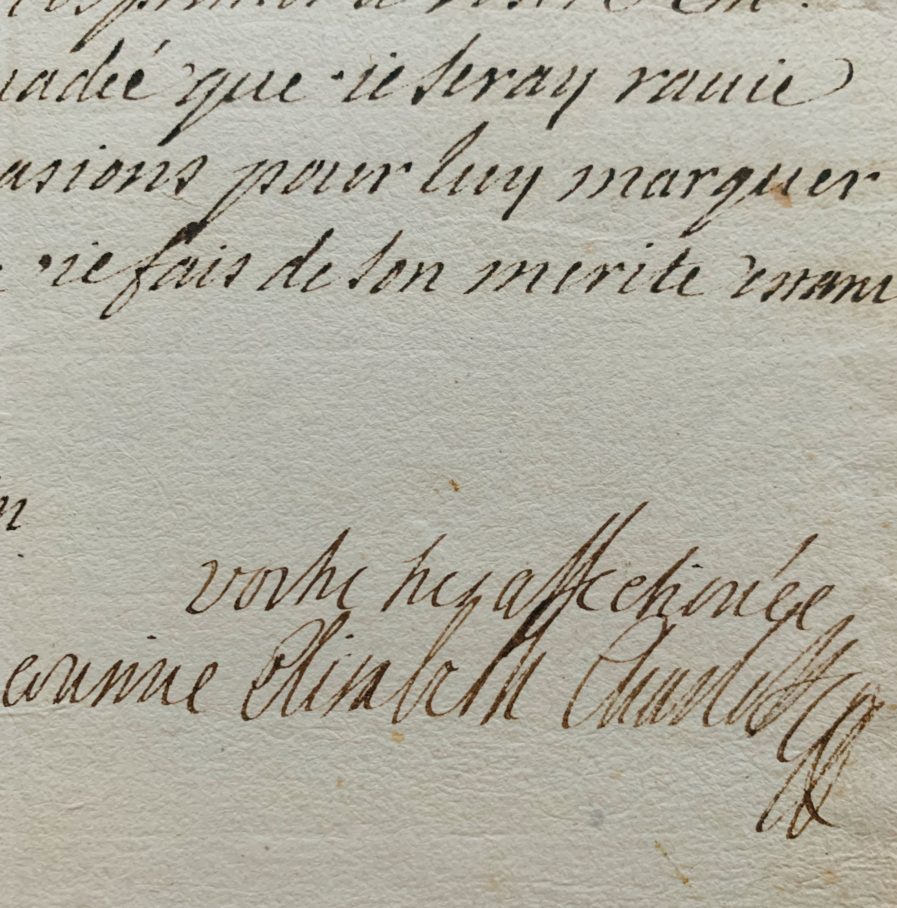 uadée que ie seray rauie
asions pour luy marquer
ie fais de son merite estant
n
vostre tres affectionée
cousine Elisabeth Charlotte